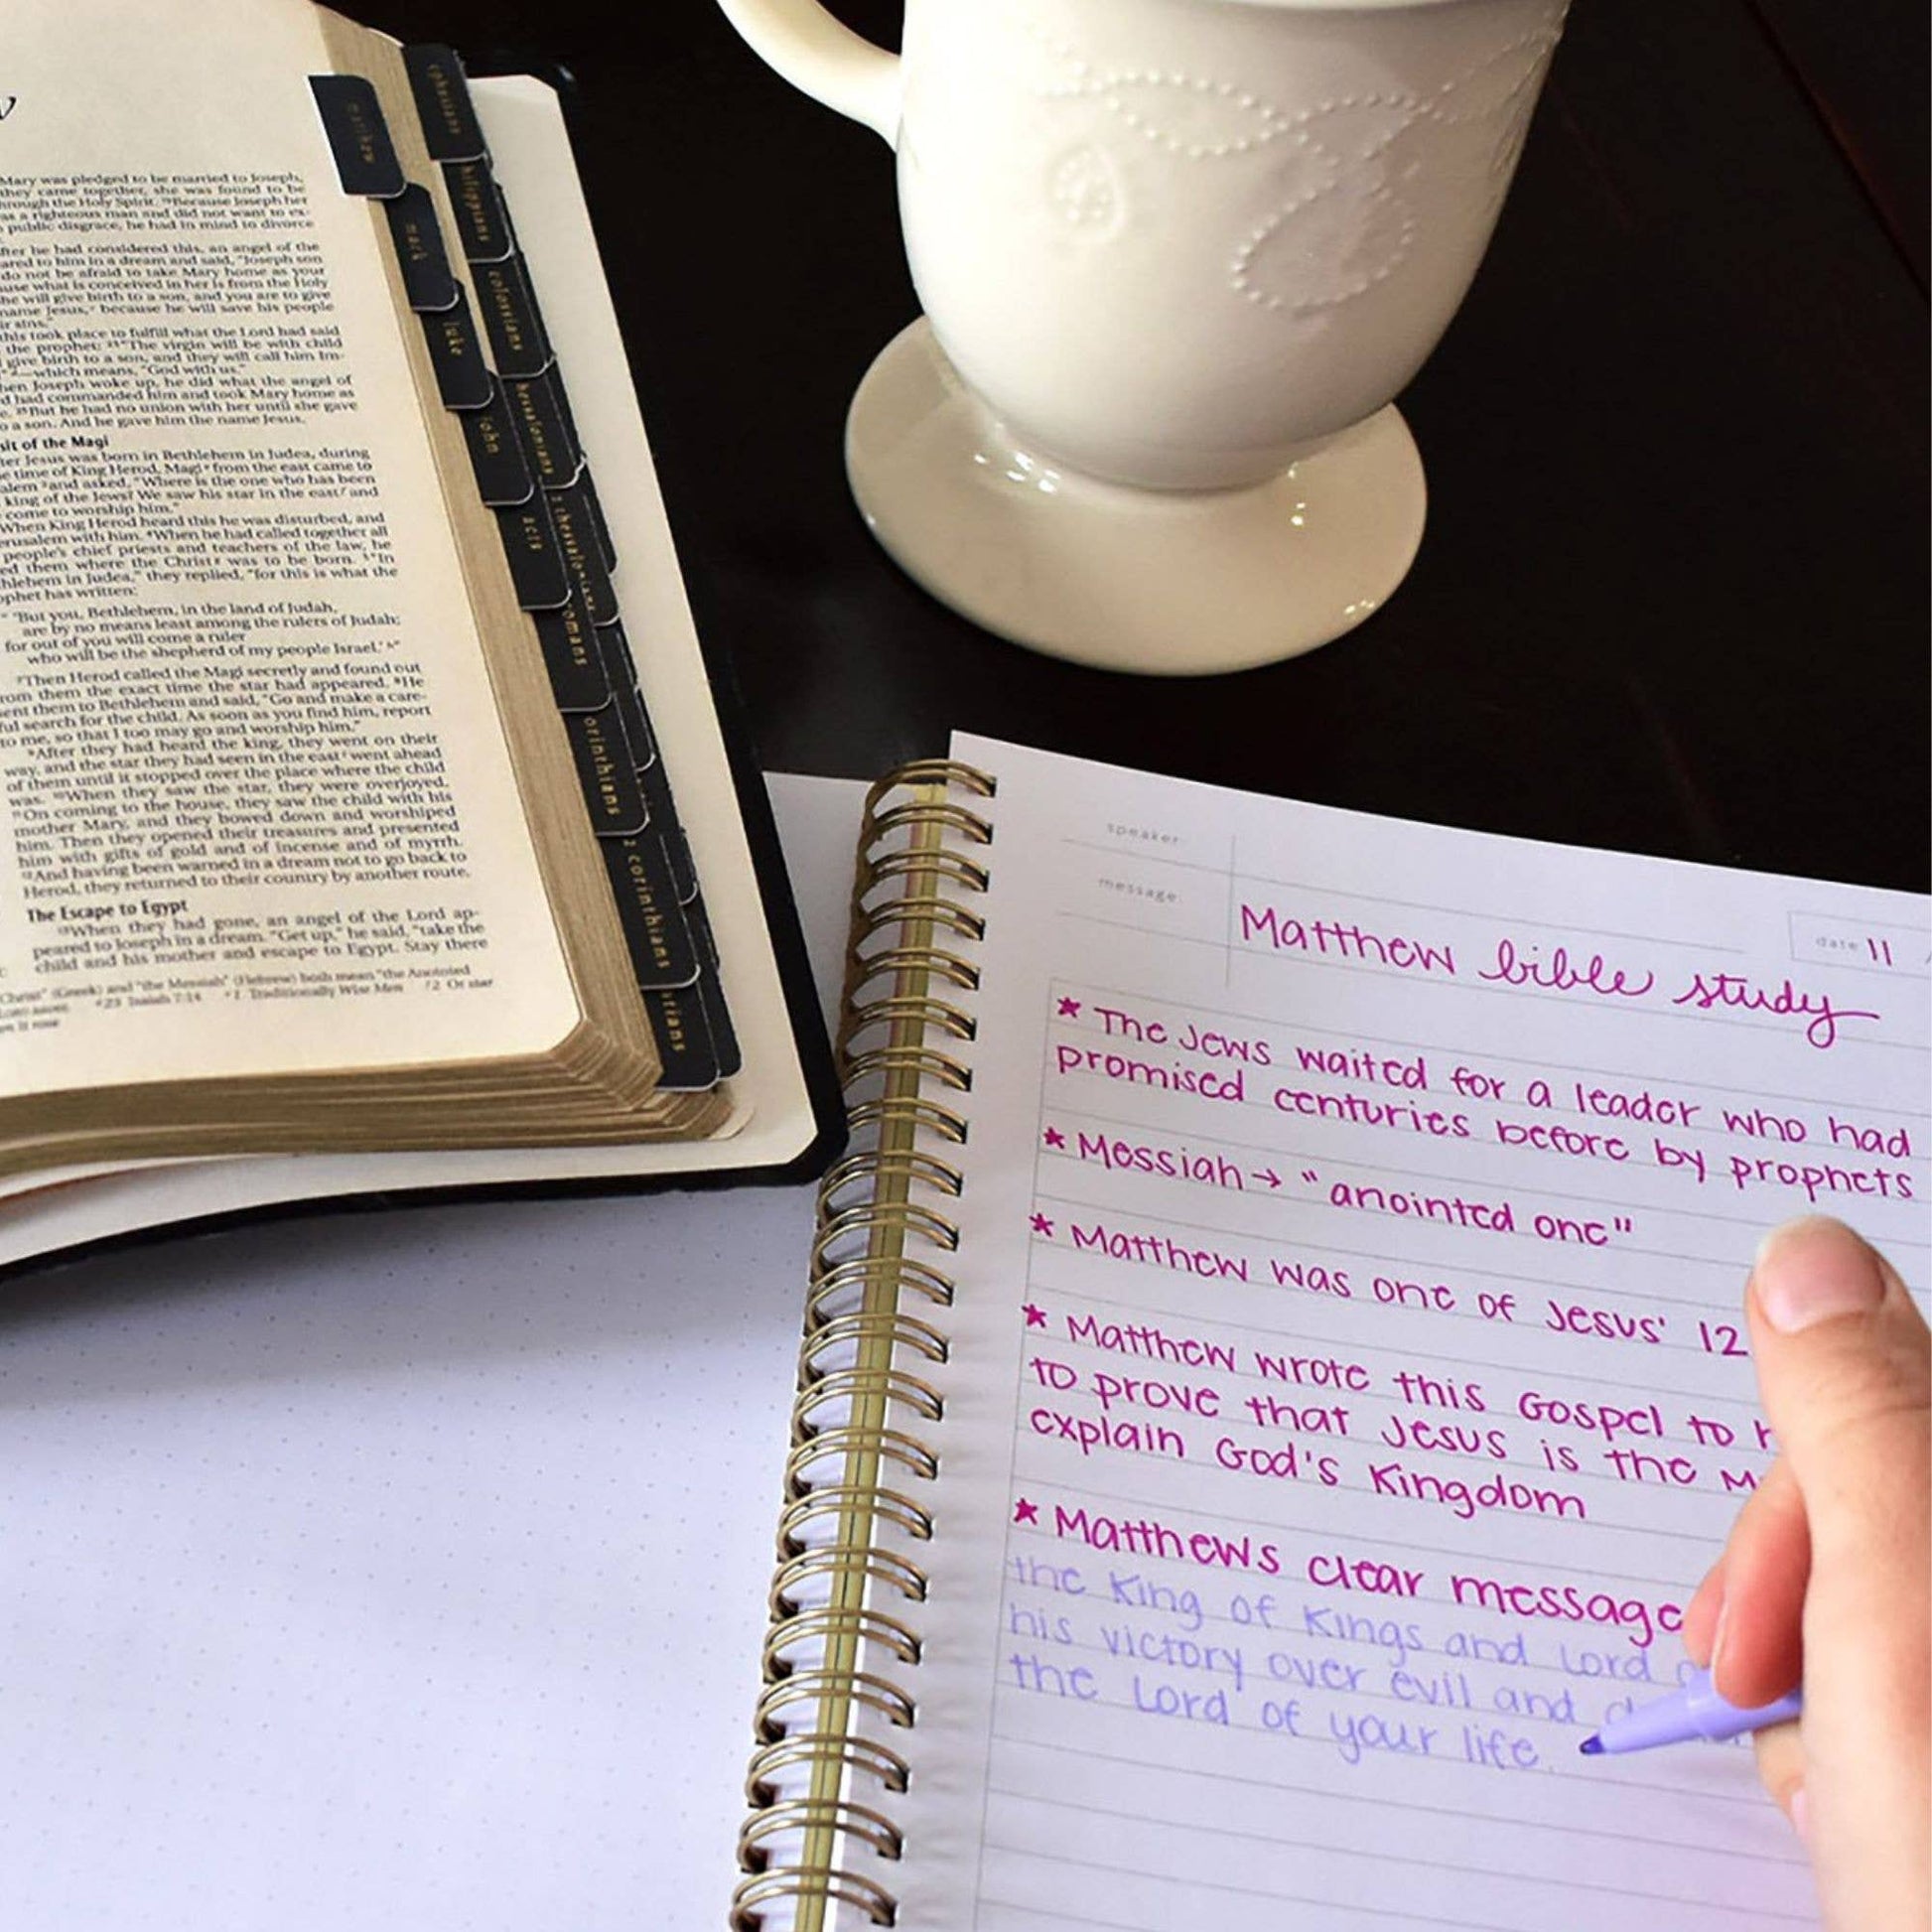 Mary was pledged to be married to Joseph,
they came together, she was found to be
through the Holy Spirit. Because Joseph her
as a righteous man and did not want to ex-
public disgrace, he had in mind to divorce
after he had considered this, an angel of the
ared to him in a dream and said, "Joseph son
do not be afraid to take Mary home as your
use what is conceived in her is from the Holy
he will give birth to a son, and you are to give
name Jesus, because he will save his people
ir sins."
this took place to fulfill what the Lord had said
the prophet: "The virgin will be with child
give birth to a son, and they will call him Im-
—which means, "God with us."
hen Joseph woke up, he did what the angel of
d had commanded him and took Mary home as
e. But he had no union with her until she gave
o a son. And he gave him the name Jesus.
sit of the Magi
ter Jesus was born in Bethlehem in Judea, during
e time of King Herod, Magi from the east came to
alem and asked, "Where is the one who has been
king of the Jews? We saw his star in the east and
come to worship him."
When King Herod heard this he was disturbed, and
erusalem with him. When he had called together all
people's chief priests and teachers of the law, he
ed them where the Christ was to be born. "In
hlehem in Judea," they replied, "for this is what the
ophet has written:
"But you, Bethlehem, in the land of Judah,
are by no means least among the rulers of Judah;
for out of you will come a ruler
who will be the shepherd of my people Israel.'"
Then Herod called the Magi secretly and found out
rom them the exact time the star had appeared. He
ent them to Bethlehem and said, "Go and make a care-
ful search for the child. As soon as you find him, report
to me, so that I too may go and worship him."
After they had heard the king, they went on their
way, and the star they had seen in the east went ahead
of them until it stopped over the place where the child
was. When they saw the star, they were overjoyed.
On coming to the house, they saw the child with his
mother Mary, and they bowed down and worshiped
him. Then they opened their treasures and presented
him with gifts of gold and of incense and of myrrh.
And having been warned in a dream not to go back to
Herod, they returned to their country by another route.
The Escape to Egypt
When they had gone, an angel of the Lord ap-
peared to Joseph in a dream. "Get up," he said, "take the
child and his mother and escape to Egypt. Stay there
Christ" (Greek) and "the Messiah" (Hebrew) both mean "the Anointed
23 Isaiah 7:14 1 Traditionally Wise Men 2 Or star
matthew
mark
luke
john
acts
omans
orinthians
2 corinthians
atians
ephesians
hilippians
colossians
hessalonians
2 thessalonians
speaker
message
Matthew bible study
date 11
* The Jews waited for a leader who had
promised centuries before by prophets
* Messiah → "anointed one"
* Matthew was one of Jesus' 12
* Matthew wrote this Gospel to
to prove that Jesus is the M
explain God's Kingdom
* Matthews clear message
the King of Kings and Lord
his victory over evil and d
the Lord of your life.